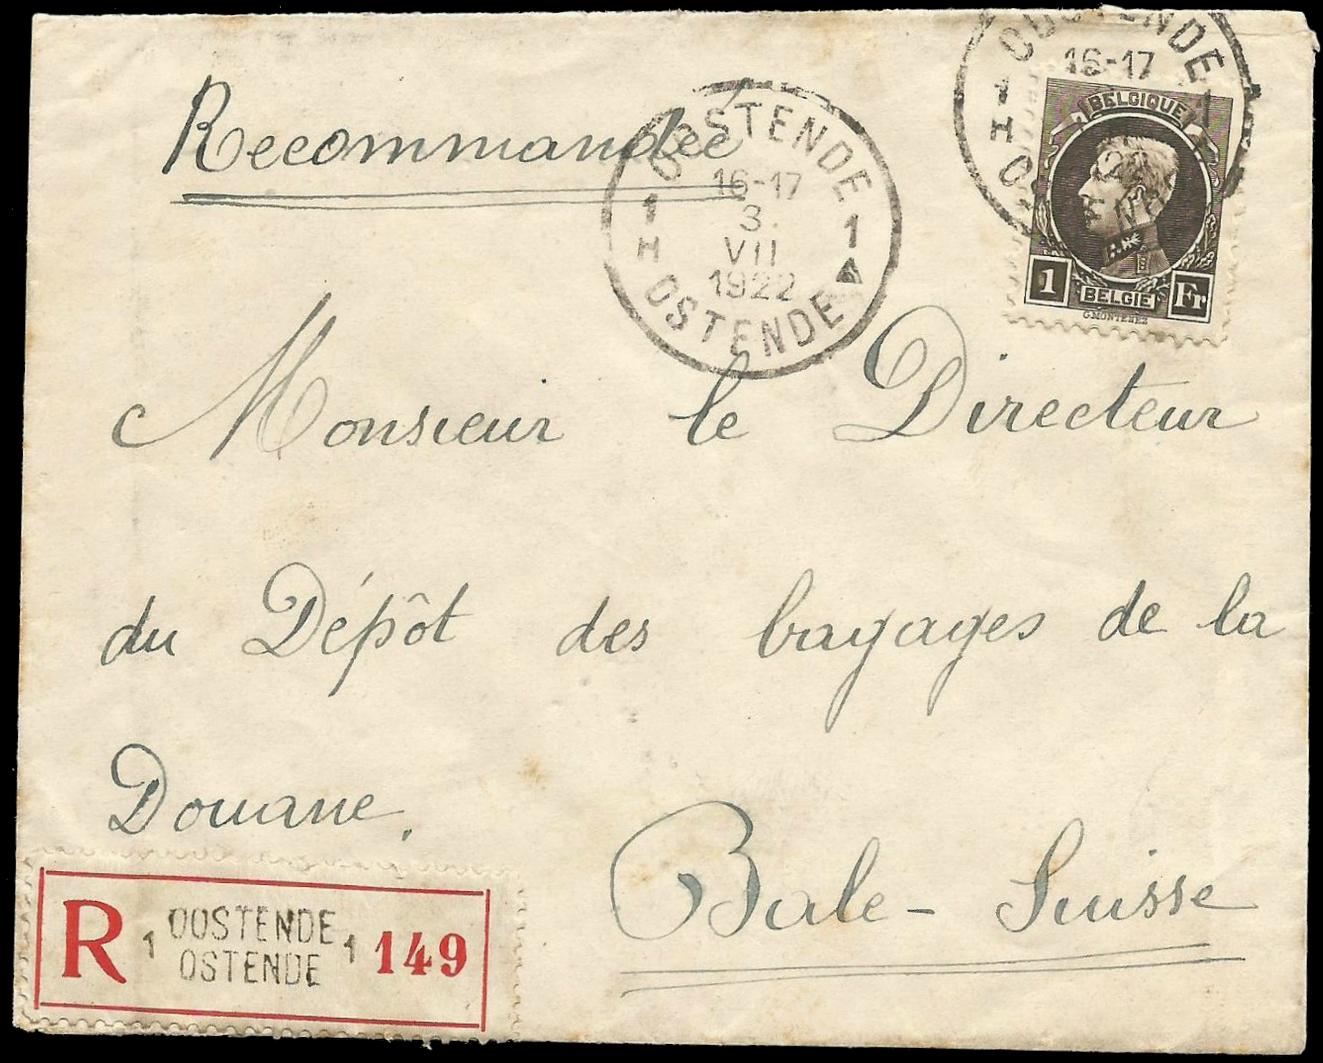 Recommandée
OOSTENDE
16-17
3.
VII
1922
1 1
H
OSTENDE
OOSTENDE
16-17
1 1
H
BELGIQUE
1 BELGIE Fr
G. MONTENEZ
Monsieur le Directeur
du Dépôt des bagages de la
Douane.
Bale - Suisse
R 1 OOSTENDE 1 149
OSTENDE